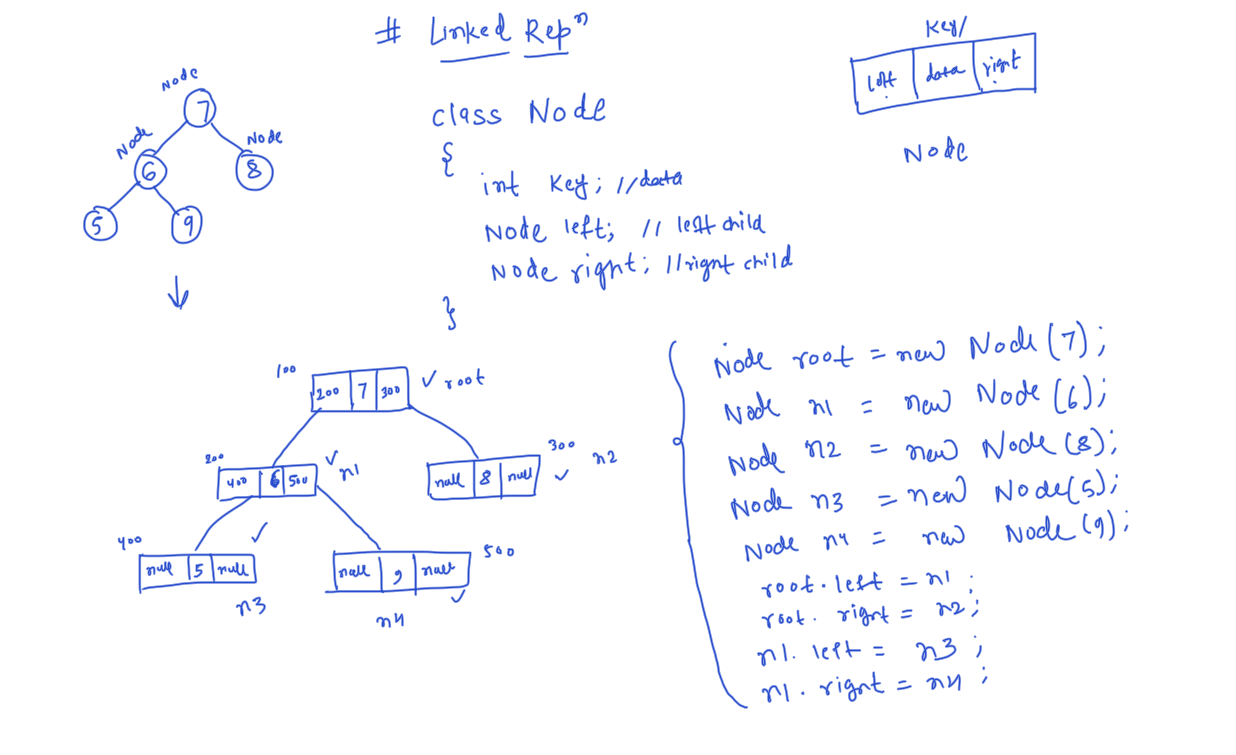 # Linked Repn
Key/
left data right
Node
Node
7
Node
Node
6
8
5
9
class Node
{
int Key; //data
Node left; // left child
Node right; //right child
}
100
200 7 300
root
200
400 6 500
n1
null 8 null
300
n2
400
null 5 null
n3
null 9 null
500
n4
Node root = new Node (7);
Node n1 = new Node (6);
Node n2 = new Node (8);
Node n3 = new Node(5);
Node n4 = new Node (9);
root.left = n1;
root. right = n2;
n1. left = n3;
n1. right = n4;